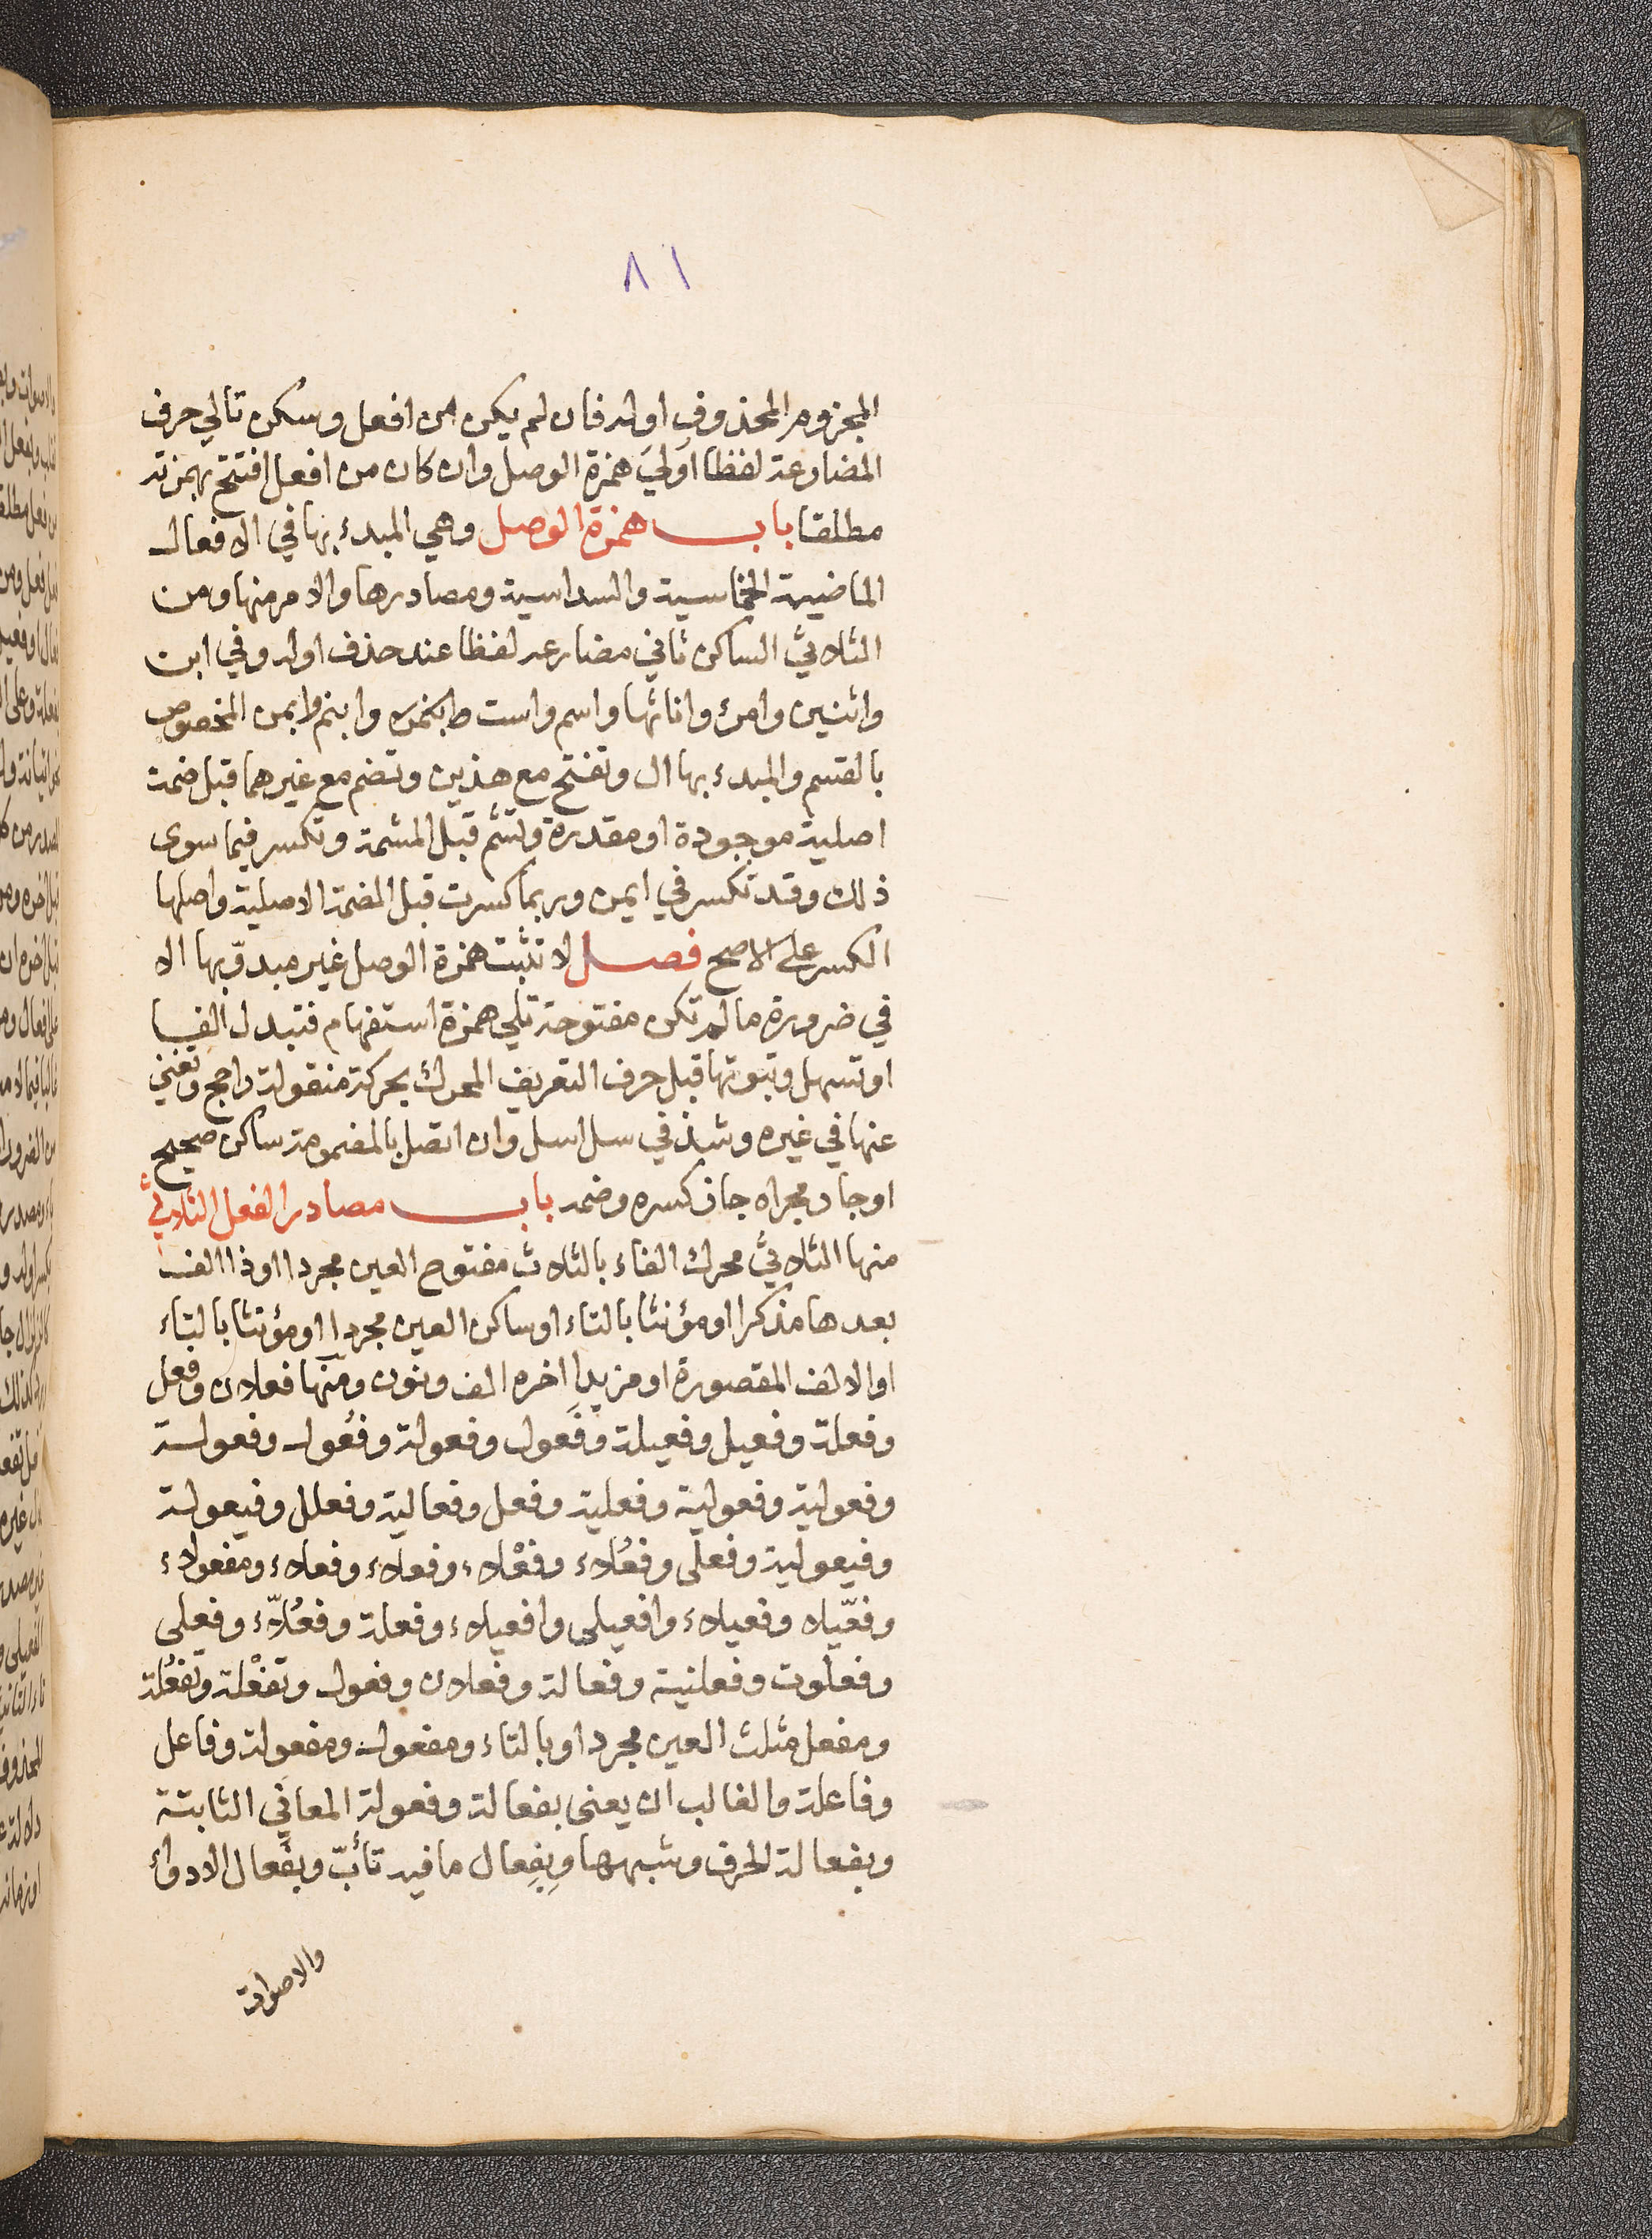 ٨١
المجزوم المحذوف اوله فان لم يكن من افعل وسكن تالي حرف
المضارعة لفظا اولي همزة الوصل وان كان من افعل افتتح بهمزته
مطلقا باب همزة الوصل وهي المبدء بها في الافعال
الماضية الخماسية والسداسية ومصادرها والامر منها ومن
الثلاثيّ الساكن ثاني مضارعه لفظا عند حذف اوله وفي ابن
واثنين وامرئ واناثها واسم واست وابنم وايمن المخصوص
بالقسم والمبدء بها ال وتفتح مع هذين وتضم مع غيرهما قبل ضمة
اصلية موجودة او مقدرة وتشم قبل المشمة وتكسر فيما سوى
ذلك وقد تكسر في ايمن وربما كسرت قبل الضمة الاصلية واصلها
الكسر على الاصح فصل لا تثبت همزة الوصل غير مبدوّ بها الا
في ضرورة ما لم تكن مفتوحة تلي همزة استفهام فتبدل الفا
او تسهل وثبوتها قبل حرف التعريف المحرك بحركة منقولة راجح وتغني
عنها في غيره وشذ في سل اسل وان اتصل بالمضمومة ساكن صحيح
او جار مجراه جاز كسره وضمه باب مصادر الفعل الثلاثيّ
منها الثلاثيّ محرك الفاء بالثلاث مفتوح العين مجردا او ذا الف
بعدها مذكرا او مؤنثا بالتاء او ساكن العين مجردا او مؤنثا بالتاء
او الالف المقصورة او مزيدا اخره الف ونون ومنها فعلان وفعل
وفعلة وفعيل وفعيلة وفَعول وفعولة وفُعول وفعولة
وفعولية وفعولية وفعلية وفعل وفعالية وفعلل وفيعولة
وفيعولية وفعلى وفعُلاء وفعْلاء وفعلاء وفعلاء ومفعولاء
وفعّيلا وفعيلاء وافعيلى وافعيلاء وفعلة وفعُلّاء وفعلى
وفعلوت وفعلنية وفعالة وفعلان وفعول وتفْعلة وتفعُلة
ومفعل مثلث العين مجردا وبالتاء ومفعول ومفعولة وفاعل
وفاعلة والغالب ان يعنى بفعالة وفعولة المعاني الثابتة
وبفعالة الحرف وشبهها وبِفِعال ما فيه تأبّ وبفُعال الادواء
والاصوات